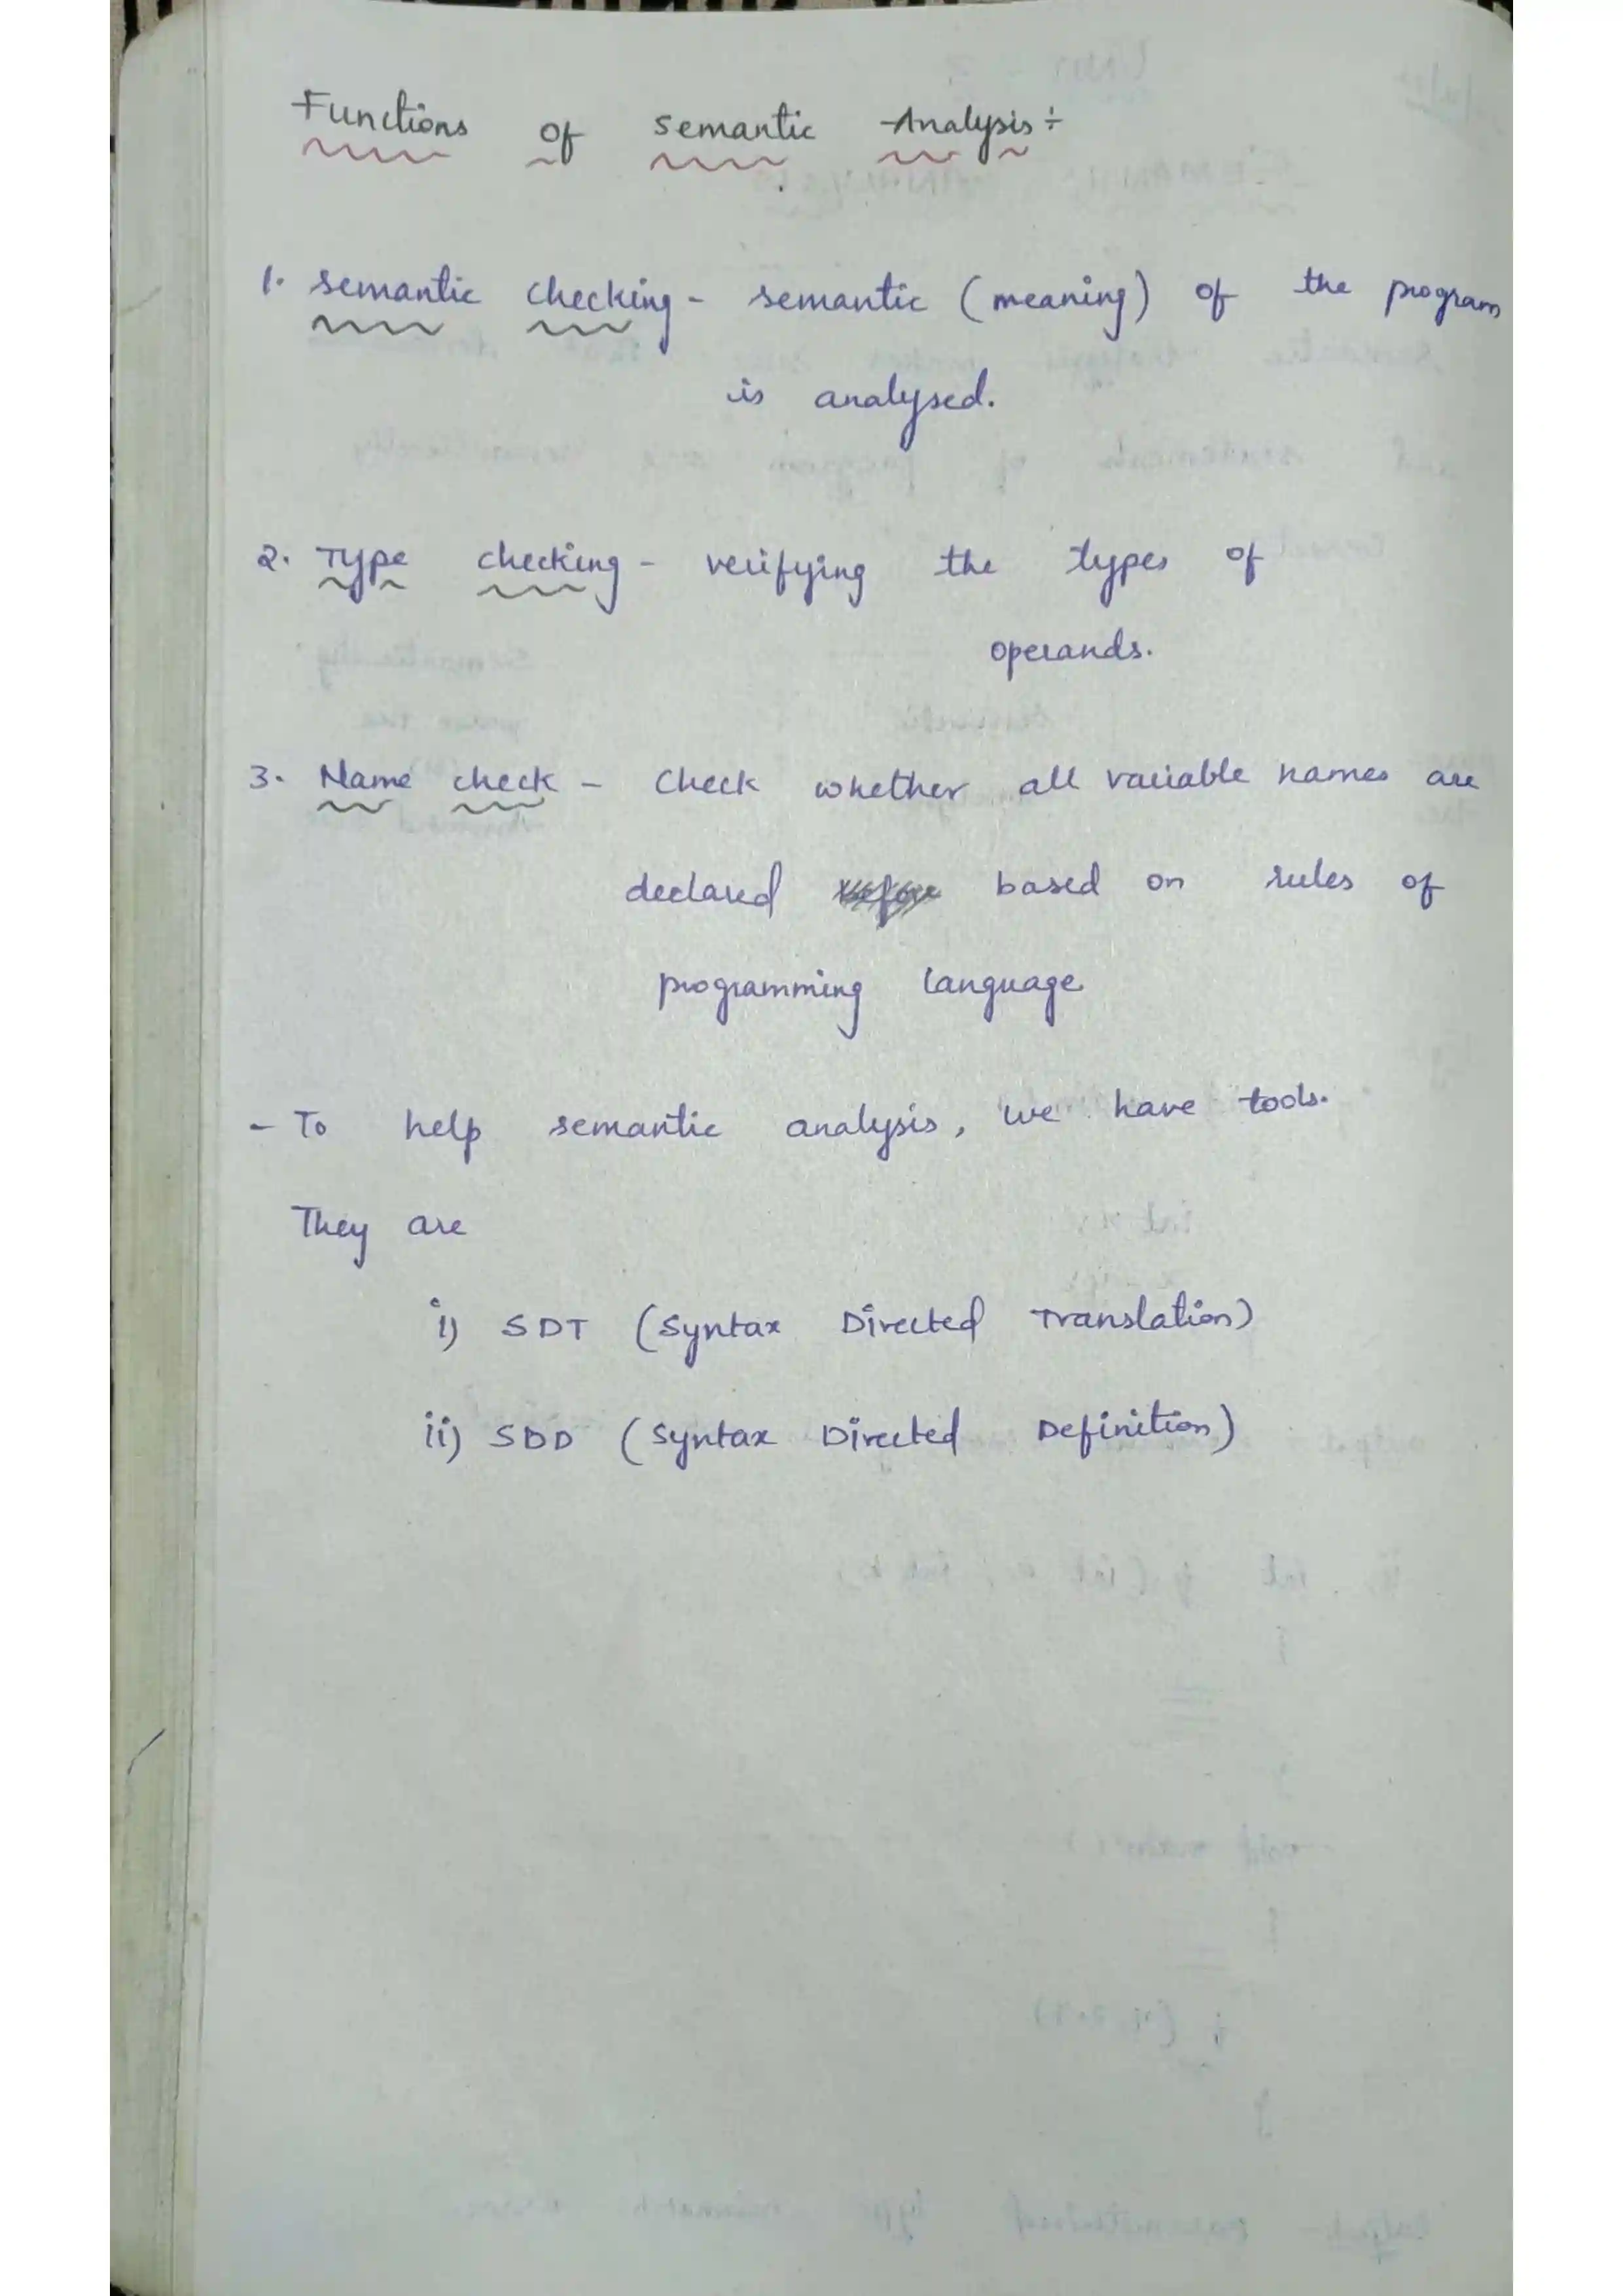 Functions of semantic Analysis ÷
1. semantic checking - semantic (meaning) of the program
is analysed.
2. Type checking - verifying the types of
operands.
3. Name check - Check whether all variable names are
declared based on rules of
programming language
- To help semantic analysis, we have tools.
They are
i) SDT (Syntax Directed Translation)
ii) SDD (Syntax Directed Definition)